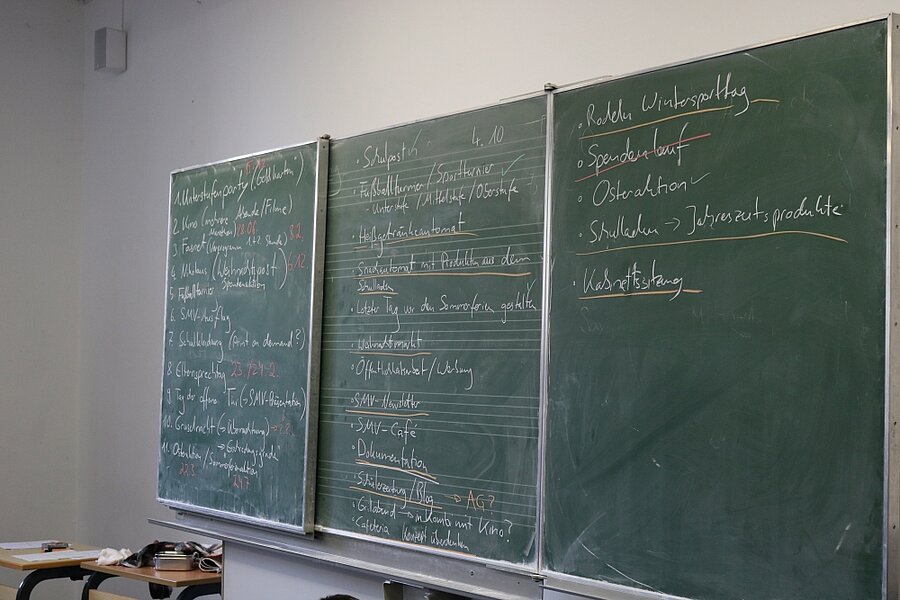 1. Unterstufenparty (Goldkarten)
2. Kino (mehrere Abende/Filme)
Marathon) 13.06.
3. Fasnet (Vorprogramm 1+2. Stunde) 8.2.
4. Nikolaus (Weihnachtspost) 6.12
5. Fußballturnier Spendenaktion
6. SMV-Ausflug
7. Schulkleidung (Print on demand?)
8. Elternsprechtag 23./24.2.
9. Tag der offenen Tür (→ SMV-Präsentation)
10. Gruselnacht (→ Übernachtung) →
11. Osteraktion / Sommeraktion
22.3. 24.7
• Schulpost 4.10
• Fußballturnier / Sportturnier ✓
- Unterstufe / Mittelstufe / Oberstufe
• Heißgetränkeautomat
• Snackautomat mit Produkten aus dem
Schulladen
• Letzter Tag vor den Sommerferien gestalten
• Weihnachtsmarkt
• Öffentlichkeitsarbeit / Werbung
• SMV-Newsletter
• SMV-Café
• Dokumentation
• Schülerzeitung / Blog → AG?
• Grillabend → in Kombi mit Kino?
• Cafeteria Konzept überdenken
• Rodeln Wintersporttag
• Spendenlauf
• Osteraktion ✓
• Schulladen → Jahreszeitsprodukte
• Kabinettssitzung